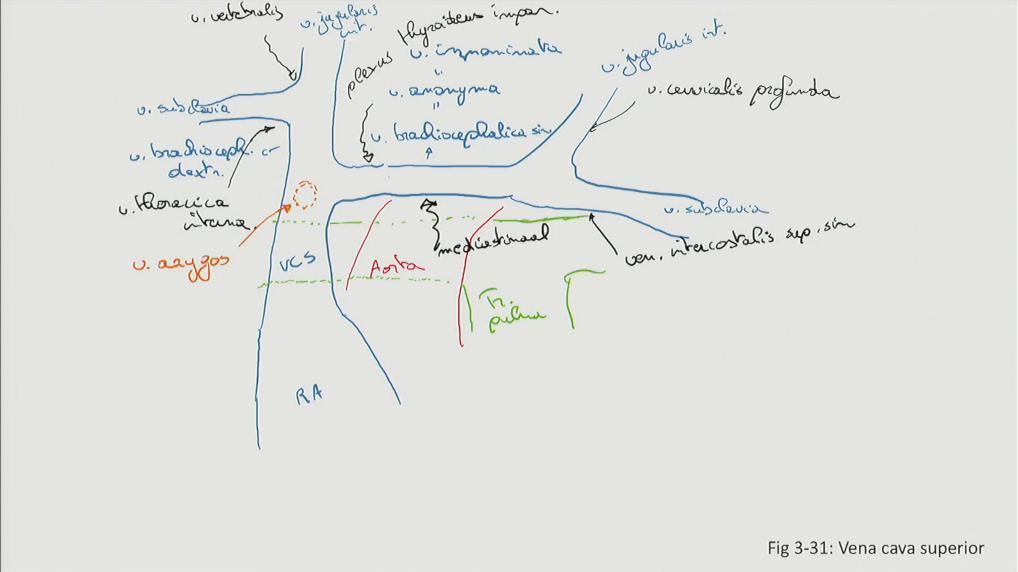 v. vertebralis
v. jugularis
int.
plexus thyroideus impar.
v. innominata
"
v. anonyma
"
v. brachiocephalica sin.
v. jugularis int.
v. cervicalis profunda
v. subclavia
v. brachioceph.
dextr.
v. thoracica
interna
v. azygos
VCS
Aorta
mediastinaal
v. subclavia
ven. intercostalis sup. sin
Tr.
pulm
RA
Fig 3-31: Vena cava superior